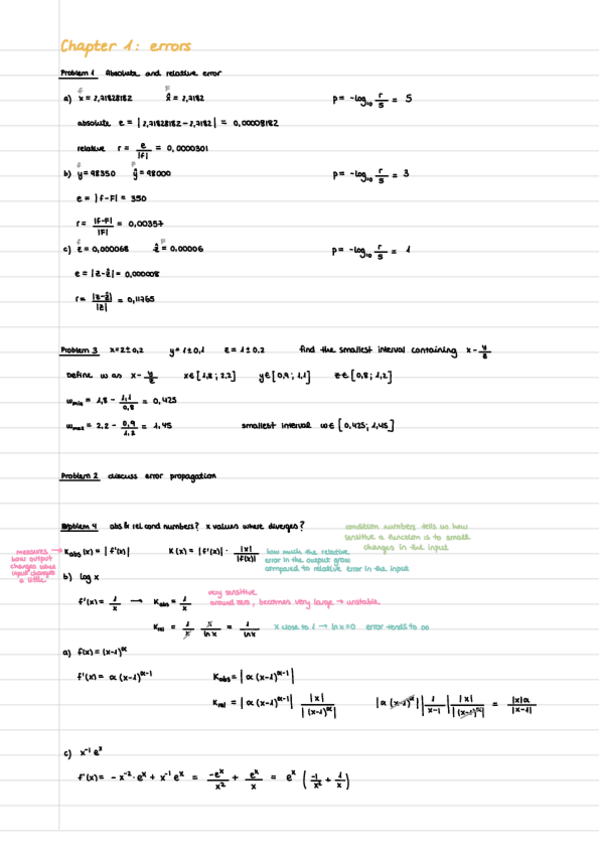 Chapter 1: errors
Problem 1 Absolute and relative error
a) x = 2,71828182 x̂ = 2,7182 p = -log₁₀ r/5 = 5
absolute e = |2,71828182 - 2,7182| = 0,00008182
relative r = e/|f| = 0,0000301
b) y = 98350 ŷ = 98000 p = -log₁₀ r/5 = 3
e = |f-F| = 350
r = |f-F|/|F| = 0,00357
c) z = 0,000068 ẑ = 0,00006 p = -log₁₀ r/5 = 1
e = |z-ẑ| = 0,000008
r = |z-ẑ|/|z| = 0,11765
Problem 3 x=2±0,2 y=1±0,1 z=1±0,2 find the smallest interval containing x - y/z
Define w as x - y/z x∈[1,8; 2,2] y∈[0,9; 1,1] z∈[0,8; 1,2]
wmin = 1,8 - 1,1/0,8 = 0,425
wmax = 2,2 - 0,9/1,2 = 1,45 smallest interval w∈[0,425; 1,45]
Problem 2 discuss error propagation
Problem 4 abs & rel cond numbers? x values where diverges?
condition numbers tell us how
sensitive a function is to small
changes in the input
measures
how output
changes when
input changes
a little
→ Kabs(x) = |f'(x)| K(x) = |f'(x)| · |x|/|f(x)|
how much the relative
error in the output grow
compared to relative error in the input
b) log x
f'(x) = 1/x → Kabs = 1/x
very sensitive
around zero, becomes very large → unstable
Krel = 1/x x/ln x = 1/ln x x close to 1 → ln x=0 error tends to ∞
a) f(x) = (x-1)^α
f'(x) = α(x-1)^α-1 Kabs = |α(x-1)^α-1|
Krel = |α(x-1)^α-1| |x|/|(x-1)^α| |α(x-1)^α| |1/x-1| |x|/|(x-1)^α| = |x|α/|x-1|
c) x⁻¹ eˣ
f'(x) = -x⁻² · eˣ + x⁻¹ eˣ = -eˣ/x² + eˣ/x = eˣ (-1/x² + 1/x)